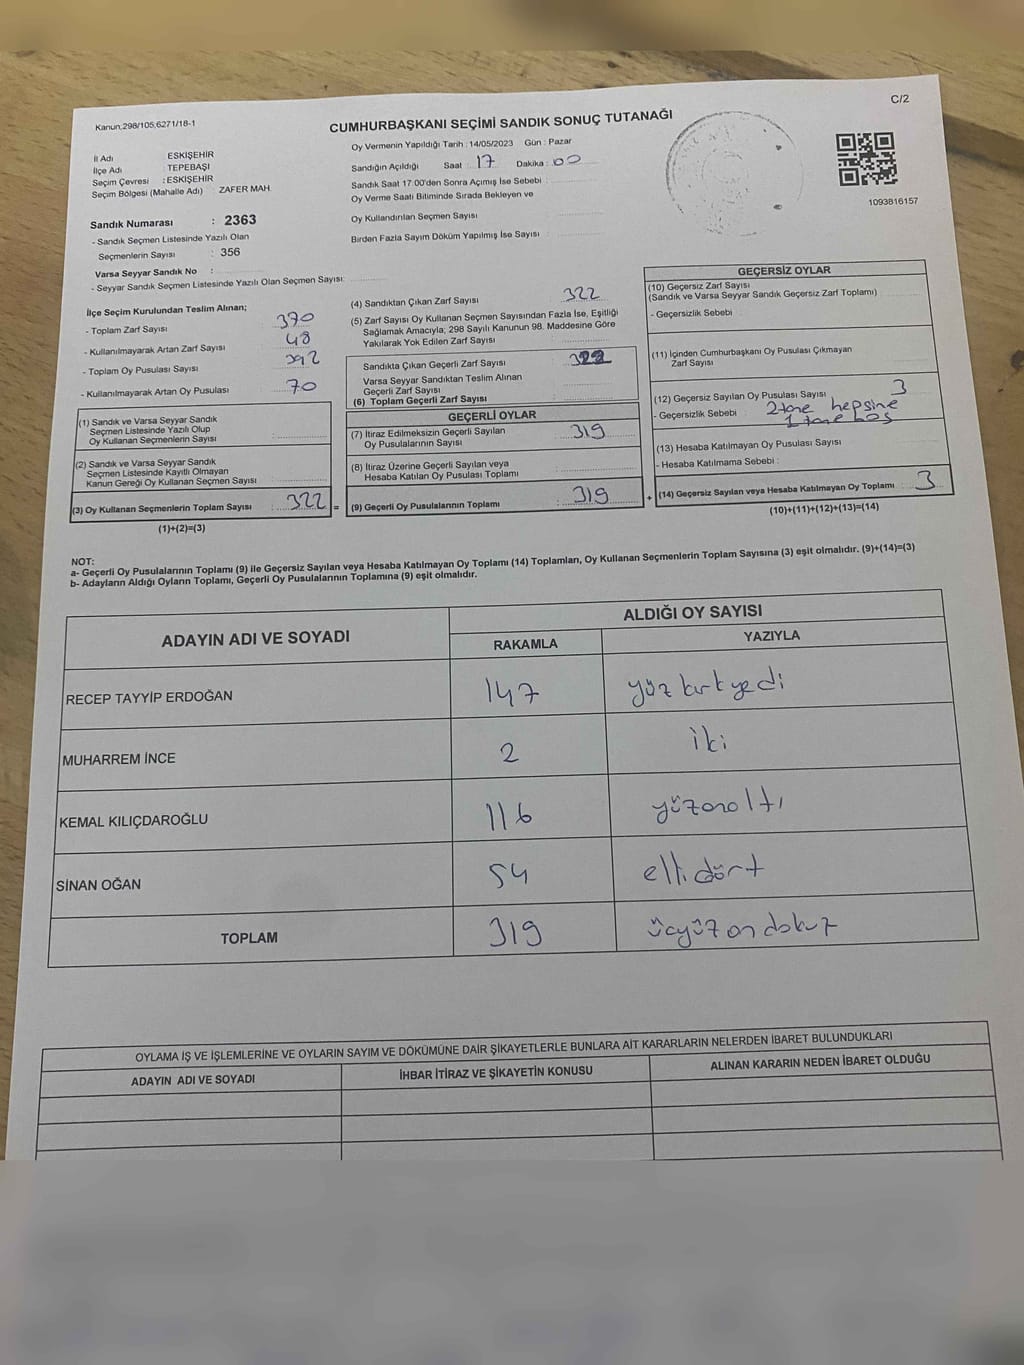 C/2
Kanun;298/105,6271/18-1
CUMHURBAŞKANI SEÇİMİ SANDIK SONUÇ TUTANAĞI
Oy Vermenin Yapıldığı Tarih : 14/05/2023 Gün : Pazar
İl Adı ESKİŞEHİR
İlçe Adı : TEPEBAŞI
Seçim Çevresi : ESKİŞEHİR
Seçim Bölgesi (Mahalle Adı) : ZAFER MAH.
Sandığın Açıldığı Saat : 17 Dakika : 00
Sandık Saat 17:00'den Sonra Açımış İse Sebebi :
Oy Verme Saati Bitiminde Sırada Bekleyen ve
Oy Kullandırılan Seçmen Sayısı
Birden Fazla Sayım Döküm Yapılmış İse Sayısı :
1093816157
Sandık Numarası : 2363
- Sandık Seçmen Listesinde Yazılı Olan
Seçmenlerin Sayısı : 356
Varsa Seyyar Sandık No :
- Seyyar Sandık Seçmen Listesinde Yazılı Olan Seçmen Sayısı:
İlçe Seçim Kurulundan Teslim Alınan;
- Toplam Zarf Sayısı 370
- Kullanılmayarak Artan Zarf Sayısı 48
- Toplam Oy Pusulası Sayısı 392
- Kullanılmayarak Artan Oy Pusulası : 70
(1) Sandık ve Varsa Seyyar Sandık
Seçmen Listesinde Yazılı Olup
Oy Kullanan Seçmenlerin Sayısı
(2) Sandık ve Varsa Seyyar Sandık
Seçmen Listesinde Kayıtlı Olmayan
Kanun Gereği Oy Kullanan Seçmen Sayısı
(3) Oy Kullanan Seçmenlerin Toplam Sayısı : 322 =
(1)+(2)=(3)
(4) Sandıktan Çıkan Zarf Sayısı 322
(5) Zarf Sayısı Oy Kullanan Seçmen Sayısından Fazla İse, Eşitliği
Sağlamak Amacıyla; 298 Sayılı Kanunun 98. Maddesine Göre
Yakılarak Yok Edilen Zarf Sayısı
Sandıkta Çıkan Geçerli Zarf Sayısı : 322
Varsa Seyyar Sandıktan Teslim Alınan
Geçerli Zarf Sayısı
(6) Toplam Geçerli Zarf Sayısı
GEÇERLİ OYLAR
(7) İtiraz Edilmeksizin Geçerli Sayılan
Oy Pusulalarının Sayısı : 319
(8) İtiraz Üzerine Geçerli Sayılan veya
Hesaba Katılan Oy Pusulası Toplamı
(9) Geçerli Oy Pusulalarının Toplamı : 319 +
GEÇERSİZ OYLAR
(10) Geçersiz Zarf Sayısı
(Sandık ve Varsa Seyyar Sandık Geçersiz Zarf Toplamı)
- Geçersizlik Sebebi
(11) İçinden Cumhurbaşkanı Oy Pusulası Çıkmayan
Zarf Sayısı
(12) Geçersiz Sayılan Oy Pusulası Sayısı 3
- Geçersizlik Sebebi : 2 tane hepsine
1 tane boş
(13) Hesaba Katılmayan Oy Pusulası Sayısı
- Hesaba Katılmama Sebebi :
(14) Geçersiz Sayılan veya Hesaba Katılmayan Oy Toplamı 3
(10)+(11)+(12)+(13)=(14)
NOT:
a- Geçerli Oy Pusulalarının Toplamı (9) ile Geçersiz Sayılan veya Hesaba Katılmayan Oy Toplamı (14) Toplamları, Oy Kullanan Seçmenlerin Toplam Sayısına (3) eşit olmalıdır. (9)+(14)=(3)
b- Adayların Aldığı Oyların Toplamı, Geçerli Oy Pusulalarının Toplamına (9) eşit olmalıdır.
ADAYIN ADI VE SOYADI
ALDIĞI OY SAYISI
RAKAMLA YAZIYLA
RECEP TAYYİP ERDOĞAN 147 yüz kırk yedi
MUHARREM İNCE 2 iki
KEMAL KILIÇDAROĞLU 116 yüzonaltı
SİNAN OĞAN 54 elli dört
TOPLAM 319 üçyüz on dokuz
OYLAMA İŞ VE İŞLEMLERİNE VE OYLARIN SAYIM VE DÖKÜMÜNE DAİR ŞİKAYETLERLE BUNLARA AİT KARARLARIN NELERDEN İBARET BULUNDUKLARI
ADAYIN ADI VE SOYADI İHBAR İTİRAZ VE ŞİKAYETİN KONUSU ALINAN KARARIN NEDEN İBARET OLDUĞU